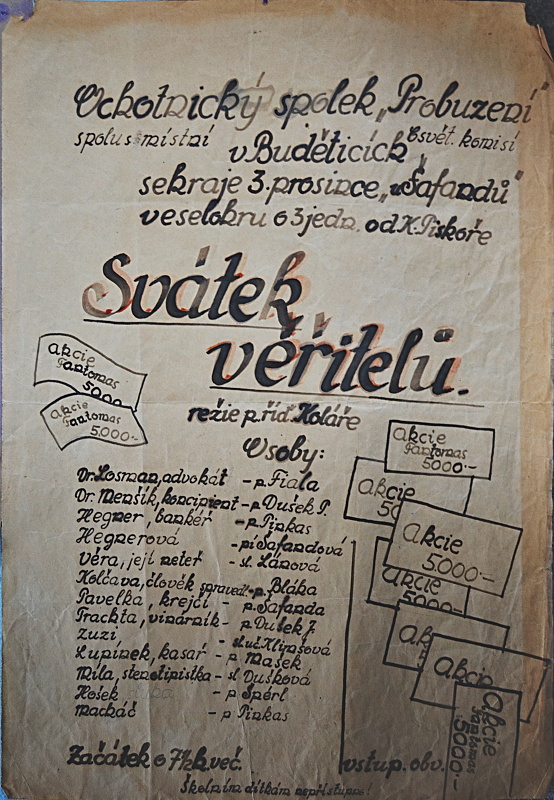 Ochotnický spolek „Probuzení"
spolu s místní osvět. komisí
v Buděticích
sehraje 3. prosince „u Šafandů"
veselohru o 3 jedn. od K. Piskoře
Svátek
věřitelů.
režie p. říd. Koláře
Osoby:
Dr. Losman, advokát - p. Fiala
Dr. Menšík, koncipient - p. Dušek P.
Hegner, bankéř - p. Pinkas
Hegnerová - pí Šafandová
Věra, její neteř - sl. Lánová
Kolčava, člověk spravedl. - p. Bláha
Pavelka, krejčí - p. Šafanda
Trachta, vinárník - p. Dušek J.
Zuzi, - sl. uč. Klipšová
Lupínek, kasař - p. Mašek
Míla, stenotipistka - sl. Dušková
Hošek - p. Šperl
Macháč - p. Pinkas
Začátek o 7½ h. več.
vstup. obv.
Školním dítkám nepřístupno!
Akcie
Fantomas
5000
Akcie
Fantomas
5.000.-
Akcie
Fantomas
5000.-
Akcie
50
Akcie
5.000.-
Akcie
5000.-
Ak
Akcie
Akcie
Fantomas
5000.-